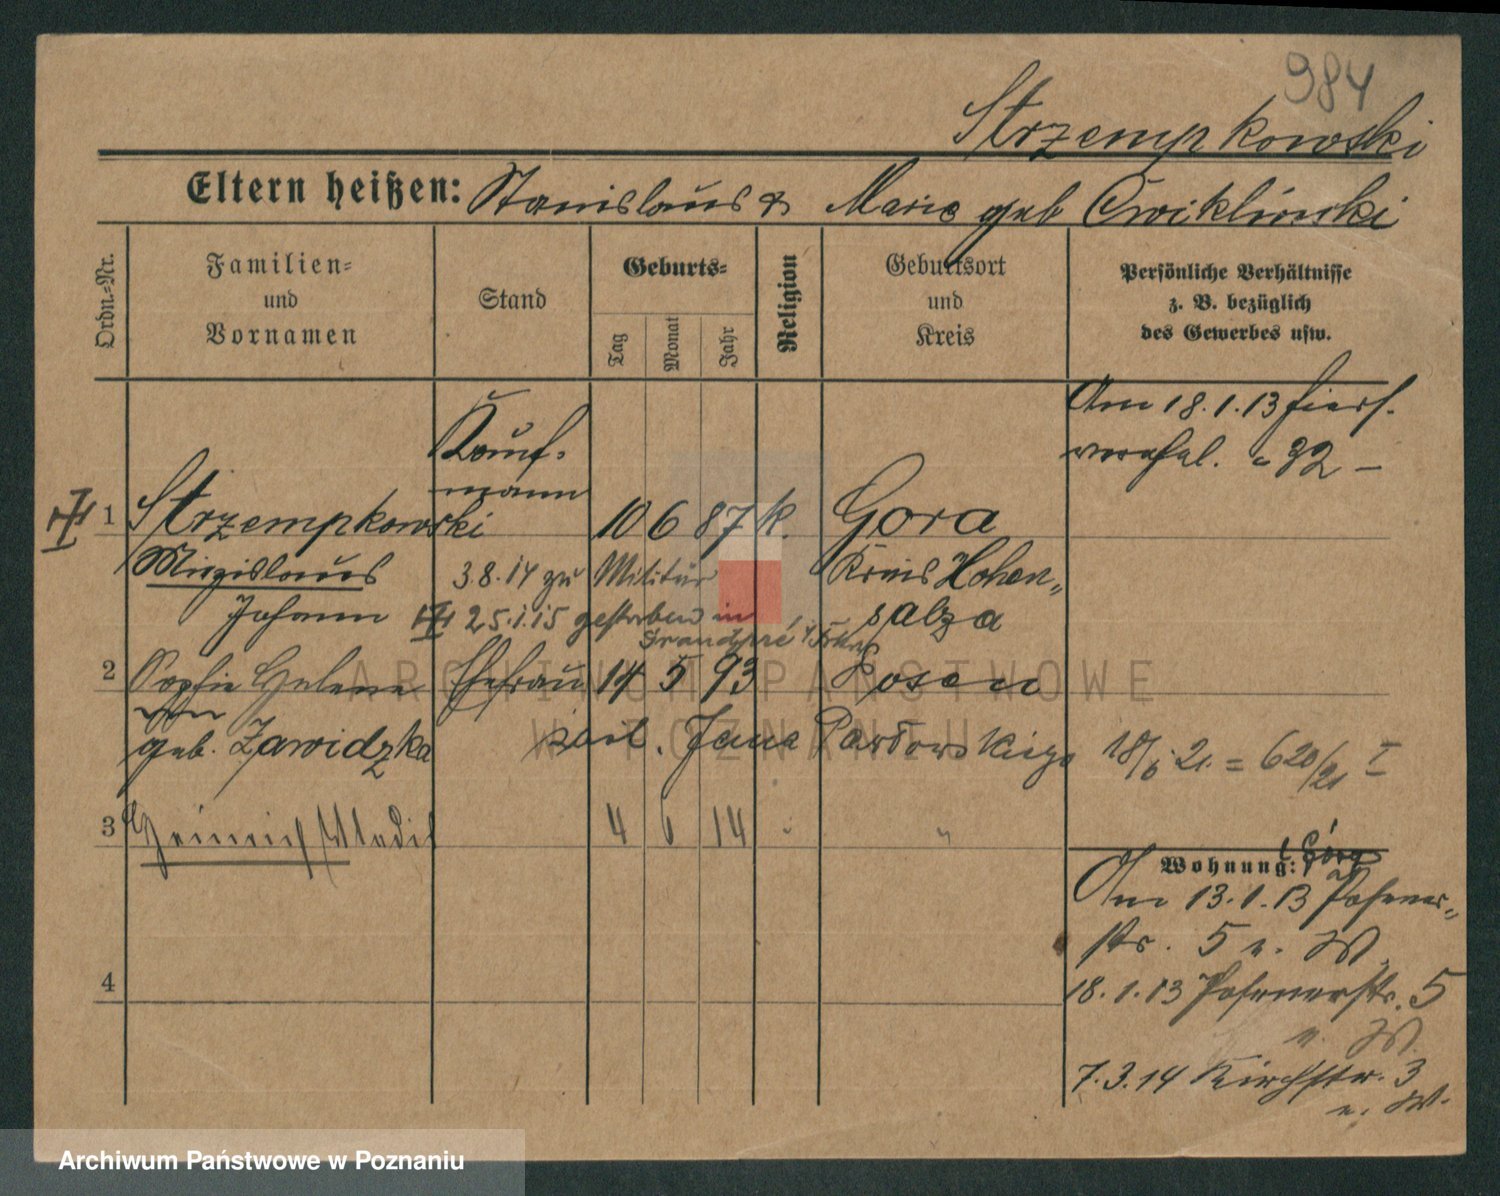 984
Strzempkowski
Eltern heißen: Stanislaus & Marie geb Cwiklinski
Ordn.=Nr.
Familien=
und
Vornamen
Stand
Geburts=
Tag
Monat
Jahr
Religion
Geburtsort
und
Kreis
Persönliche Verhältnisse
z. B. bezüglich
des Gewerbes usw.
Am 18.1.13 hier
32 –
Kauf-
mann
1 Strzempkowski 10 6 87 k. Gora
Miezislaus 3.8.14 zu Militär Kreis Hohen-
Johann 25.1.15 gestorben in salza
Grandpré
2 Sophie Helene Ehefrau 14 5 93 Posen
von
geb. Zawidzka
Jana 18/6 21. = 620/21 I
3 Heinrich 4 6 14 " "
Wohnung:
Am 13.1.13 Posener-
str. 5 n. W.
18.1.13 Posenerstr. 5
n. W.
7.3.14 Kirchstr. 3
n. W.
4
ARCHIWUM PAŃSTWOWE
W POZNANIU
Archiwum Państwowe w Poznaniu